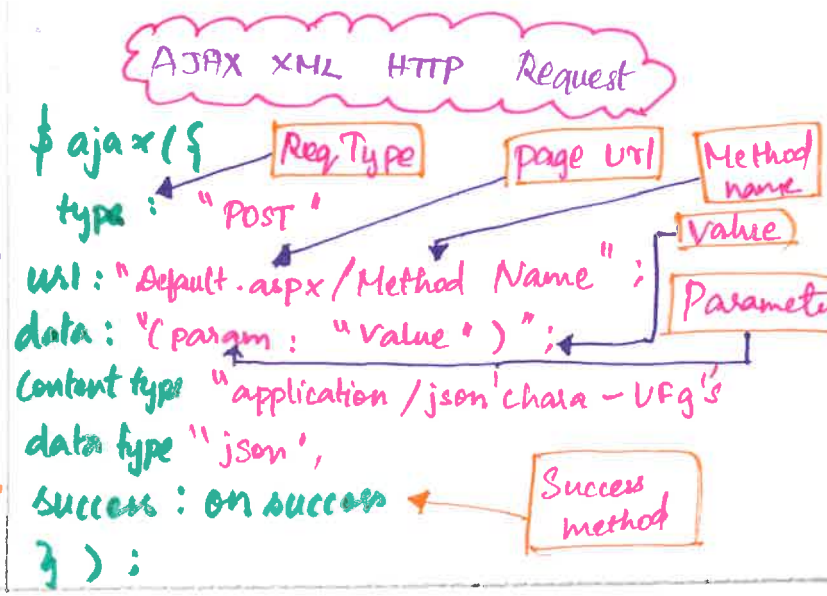 AJAX XML HTTP Request
$ ajax({
Req Type
page url
Method name
type : "POST"
Value
url : "Default.aspx/Method Name" ;
Paramete
data : "(param : "Value" ) " ;
Content type "application /json' chara - UFg's
data type "json",
success : on success
Success method
} ) ;